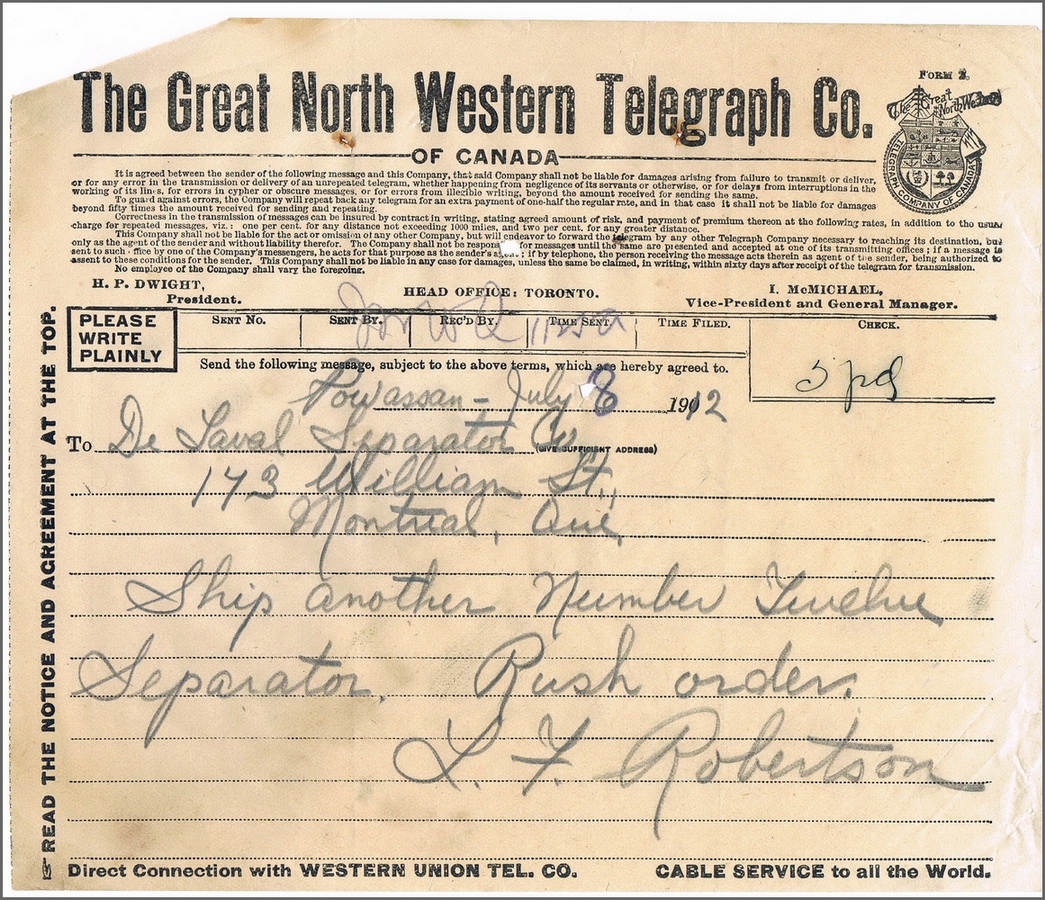 FORM 2.
The Great North Western Telegraph Co.
OF CANADA
The Great North Western
TELEGRAPH COMPANY OF CANADA
It is agreed between the sender of the following message and this Company, that said Company shall not be liable for damages arising from failure to transmit or deliver,
or for any error in the transmission or delivery of an unrepeated telegram, whether happening from negligence of its servants or otherwise, or for delays from interruptions in the
working of its lines, for errors in cypher or obscure messages, or from errors from illegible writing, beyond the amount received for sending the same.
To guard against errors, the Company will repeat back any telegram for an extra payment of one-half the regular rate, and in that case it shall not be liable for damages
beyond fifty times the amount received for sending and repeating.
Correctness in the transmission of messages can be insured by contract in writing, stating agreed amount of risk, and payment of premium thereon at the following rates, in addition to the usual
charge for repeated messages, viz: one per cent. for any distance not exceeding 1000 miles, and two per cent. for any greater distance.
This Company shall not be liable for the act or omission of any other Company, but will endeavor to forward the telegram by any other Telegraph Company necessary to reaching its destination, but
only as the agent of the sender and without liability therefor. The Company shall not be respon for messages until the same are presented and accepted at one of its transmitting offices; if a message is
sent to such office by one of the Company's messengers, he acts for that purpose as the sender's agent; if by telephone, the person receiving the message acts therein as agent of the sender, being authorized to
assent to these conditions for the sender. This Company shall not be liable in any case for damages, unless the same be claimed, in writing, within sixty days after receipt of the telegram for transmission.
No employee of the Company shall vary the foregoing.
H. P. DWIGHT,
President.
HEAD OFFICE: TORONTO.
I. McMICHAEL,
Vice-President and General Manager.
PLEASE
WRITE
PLAINLY
SENT No. SENT BY. REC'D BY. TIME SENT. TIME FILED. CHECK.
5 pd
Send the following message, subject to the above terms, which are hereby agreed to.
Powassan - July 8 1912
To De Laval Separator Co
(GIVE SUFFICIENT ADDRESS)
173 William St.,
Montreal, Que,
Ship another Number Twelve
Separator. Rush order.
L. F. Robertson
READ THE NOTICE AND AGREEMENT AT THE TOP.
Direct Connection with WESTERN UNION TEL. CO. CABLE SERVICE to all the World.